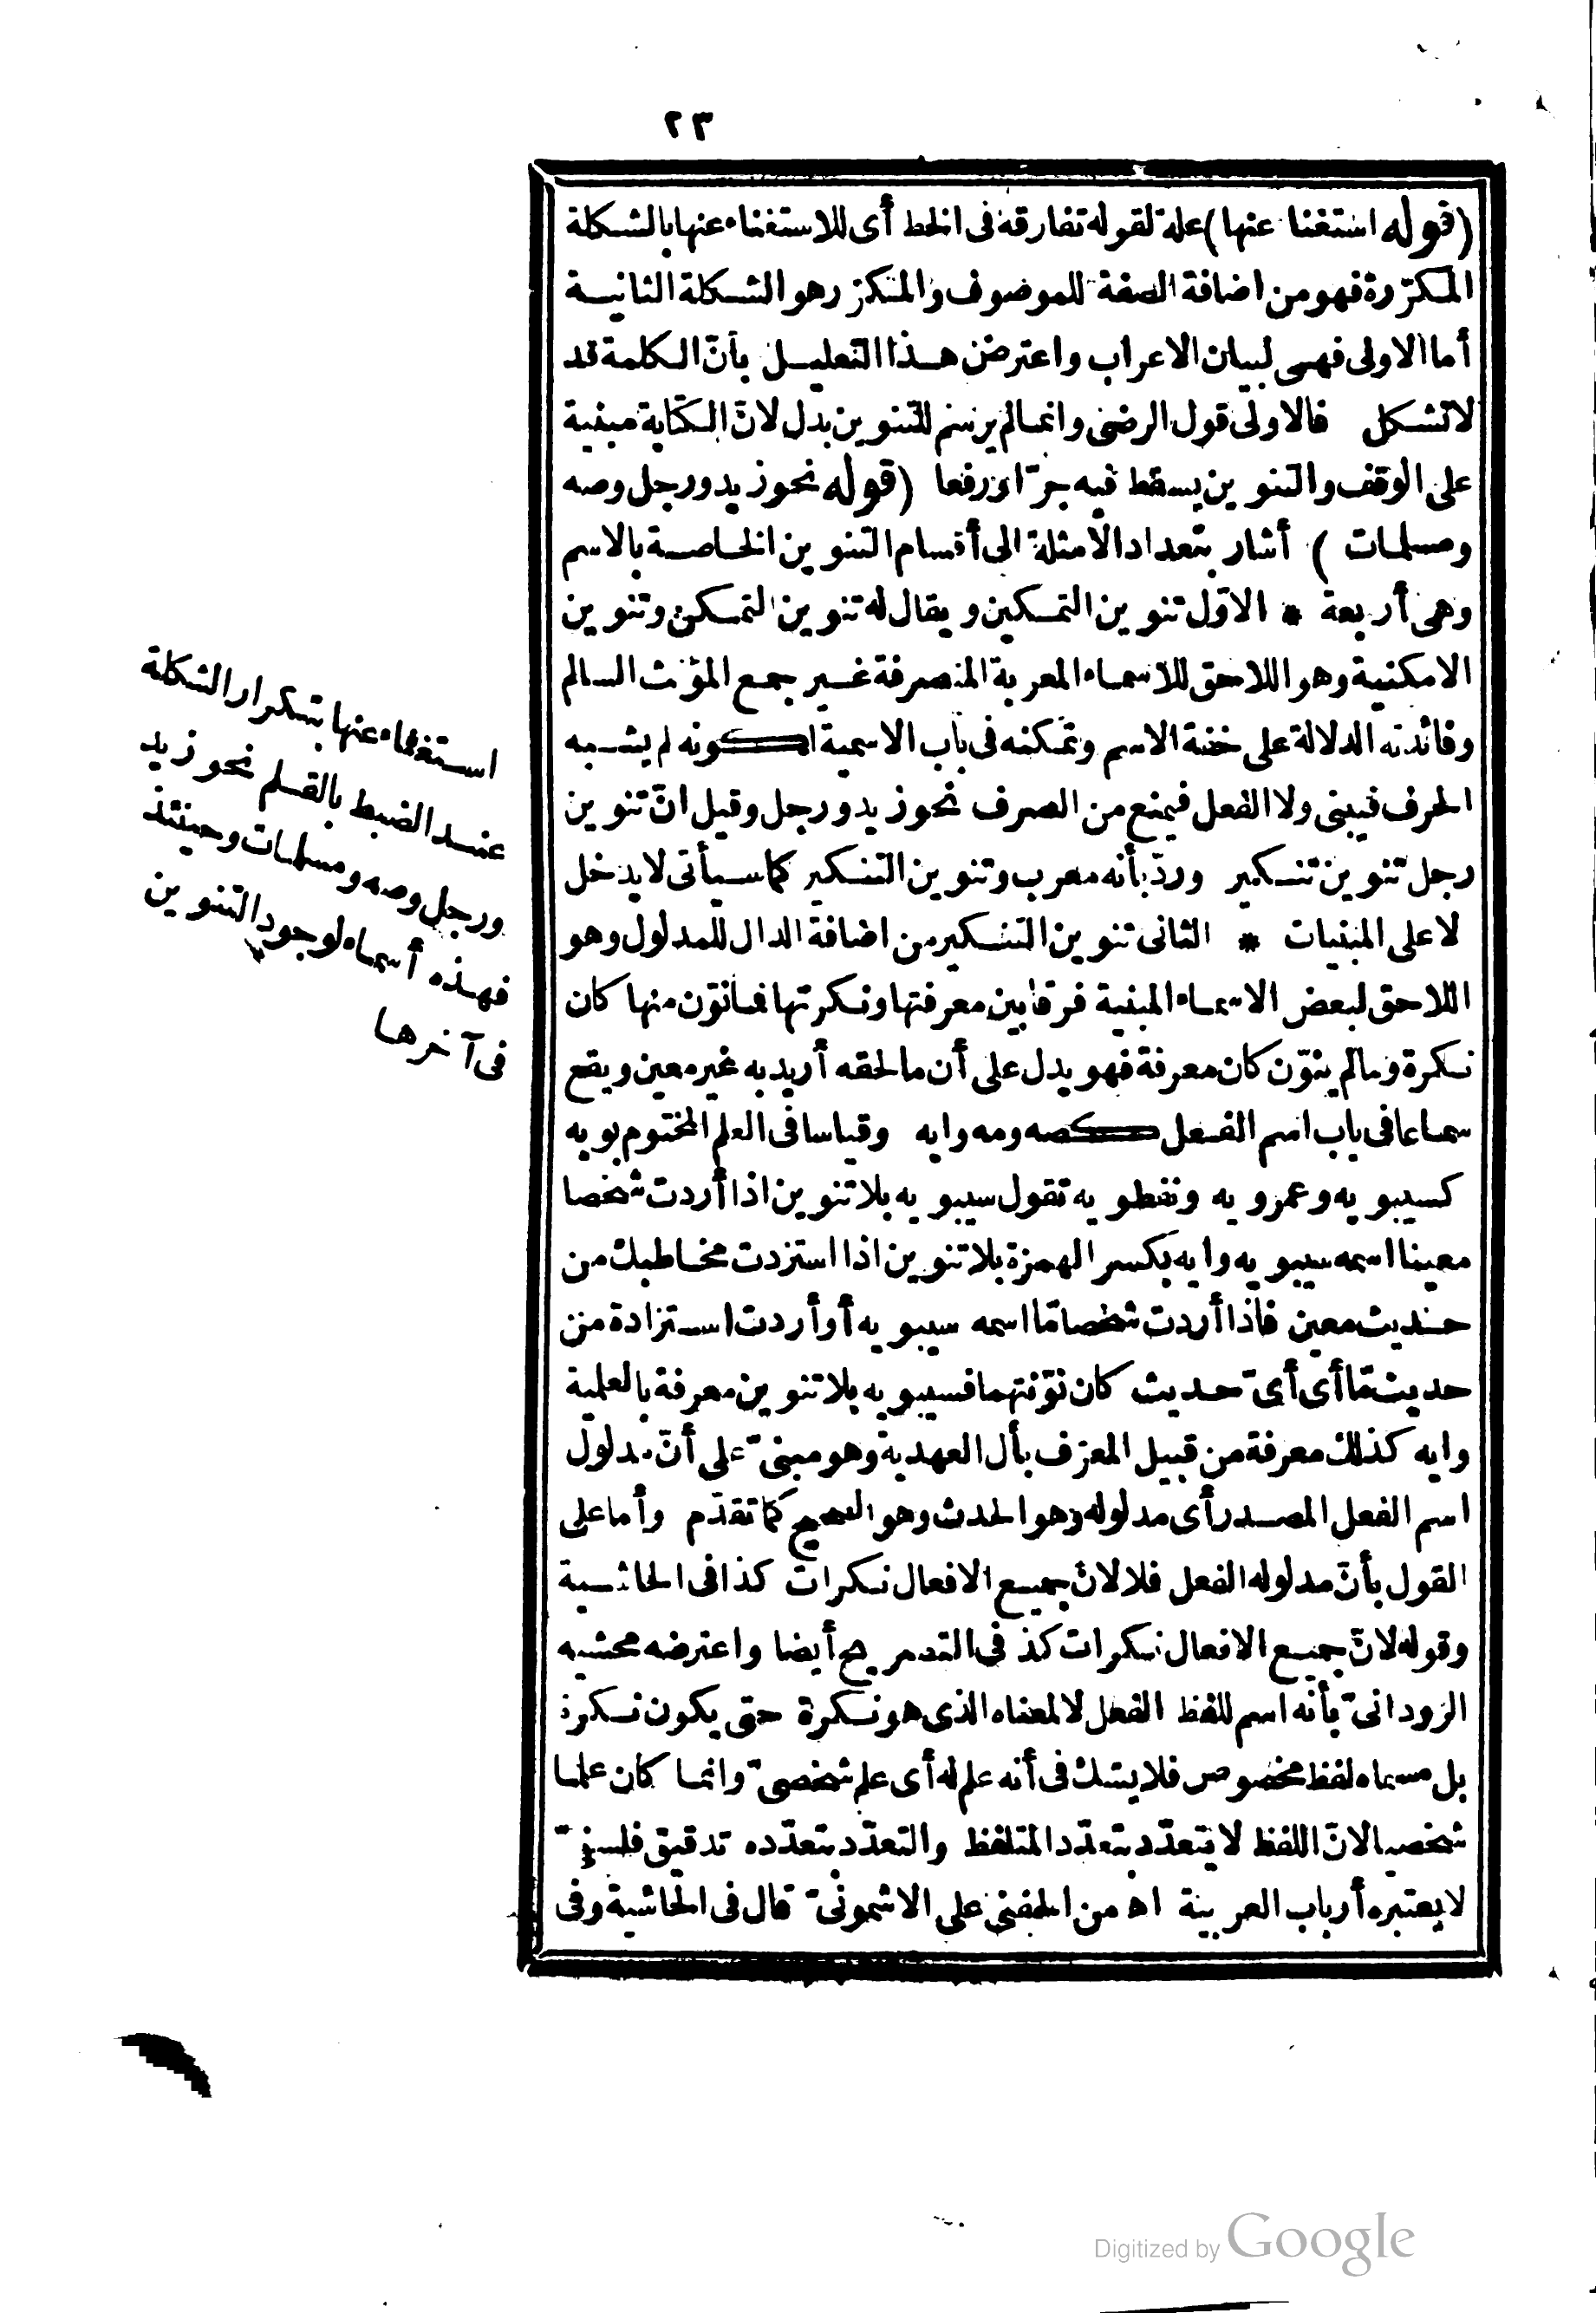 ٢٣
(قوله استغنا عنها) علة لقوله تفارقه فى الخط أى للاستغناء عنها بالشكلة
المكرّرة فهو من اضافة الصفة للموصوف والمنكرّر هو الشكلة الثانية
أما الاولى فهى لبيان الاعراب واعترض هذا التعليل بأنّ الكلمة قد
لا تشكل فالاولى قول الرضى وانما لم يرسم للتنوين بدل لانّ الكتابة مبنية
على الوقف والتنوين يسقط فيه جرّا ورفعا (قوله نحو زيد ورجل وصه
ومسلمات) أشار بتعداد الأمثلة الى أقسام التنوين الخاصة بالاسم
وهى أربعة * الاوّل تنوين التمكين ويقال له تنوين التمكن وتنوين
الامكنية وهو اللاحق للاسماء المعربة المنصرفة غير جمع المؤنث السالم
وفائدته الدلالة على خفة الاسم وتمكنه فى باب الاسمية لكونه لم يشبه
الحرف فيبنى ولا الفعل فيمنع من الصرف نحو زيد ورجل وقيل انّ تنوين
رجل تنوين تنكير وردّ بأنه معرب وتنوين التنكير كما سيأتى لا يدخل
لا على المبنيات * الثانى تنوين التنكير من اضافة الدال للمدلول وهو
اللاحق لبعض الاسماء المبنية فرقا بين معرفتها ونكرتها فما نوّن منها كان
نكرة وما لم ينوّن كان معرفة فهو يدل على أن ما لحقه أريد به غير معين ويقع
سماعا فى باب اسم الفعل كصه ومه وايه وقياسا فى العلم المختوم بويه
كسيبويه وعمرويه ونفطويه تقول سيبويه بلا تنوين اذا أردت شخصا
معينا اسمه سيبويه وايه بكسر الهمزة بلا تنوين اذا استزدت مخاطبك من
حديث معين فاذا أردت شخصا مّا اسمه سيبويه أو أردت استزادة من
حديث مّا أى أىّ حديث كان نوّنتهما فسيبويه بلا تنوين معرفة بالعلمية
وايه كذلك معرفة من قبيل المعرّف بأل العهدية وهو مبنىّ على أنّ مدلول
اسم الفعل المصدر أى مدلوله وهو الحدث وهو الصحيح كما تقدّم وأما على
القول بأنّ مدلوله الفعل فلا لانّ جميع الافعال نكرات كذا فى الحاشية
وقوله لانّ جميع الافعال نكرات كذ فى التصريح أيضا واعترضه محشيه
الرودانىّ بأنه اسم للفظ الفعل لا لمعناه الذى هو نكرة حتى يكون نكرة
بل مسماه لفظ مخصوص فلا يشك فى أنه علم له أى علم شخصىّ وانما كان علما
شخصيا لانّ اللفظ لا يتعدّد بتعدّد المتلفظ والتعدّد بتعدّده تدقيق فلسفىّ
لا يعتبره أرباب العربية اه من الحفنى على الاشمونىّ قال فى الحاشية وفى
استغناء عنها بتكرار الشكلة
عند الضبط بالقلم نحو زيد
ورجل وصه ومسلمات وحينئذ
فهذه أسماء لوجود التنوين
فى آخرها
Digitized by Google